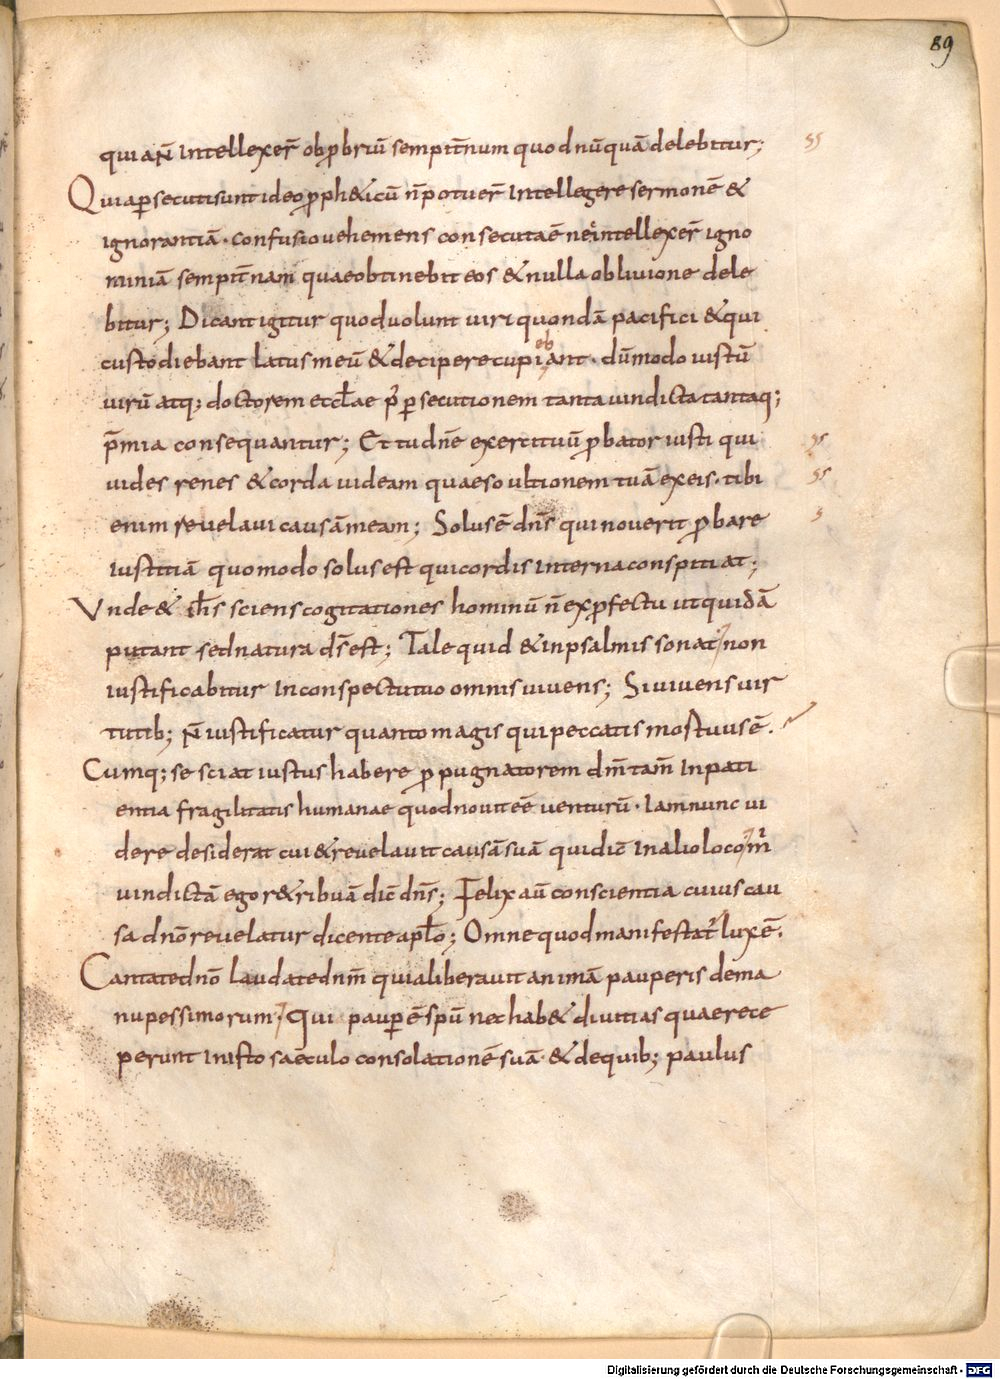 89
quia n̄ intellexer̄ obprobriū sempit̄num quod nūquā delebitur;
Quia ꝑsecuti sunt ideo ꝓph&icū n̄ potuer̄ intellegere sermonē &
ignorantiā· confusio uehemens consecuta ē ne intellexer̄ igno
miniā sempit̄nam quae obtinebit eos & nulla obliuione dele
bitur; Dicant igitur quod uolunt uiri quondā pacifici & qui
eb
custodiebant latus meū & decipere cupiant· dūmodo iustū
uirū atq; doctorem eccl̄ae p̄ ꝑsecutionem tanta uindicta tantaq;
p̄mia consequantur; Et tu dn̄e exercituū ꝓbator iusti qui
uides renes & corda uideam quaeso ultionem tuā ex eis· tibi
enim reuelaui causā meam; Solus ē dn̄s qui nouerit ꝓbare
iustitiā quomodo solus est qui cordis interna conspitiat;
Vnde & ih̄s sciens cogitationes hominū n̄ ex ꝓfectu ut quidā
putant sed natura dꝭ est; Tale quid & in psalmis sonat non
iustificabitur in conspectu tuo omnis uiuens; Si uiuens uir
tutib; n̄ iustificatur quanto magis qui peccatis mostuus ē.
Cumq; se sciat iustus habere ꝓpugnatorem dm̄ tam̄ inpati
entia fragilitatis humanae quod nouit eē uenturū· iam nunc ui
dere desiderat cui & reuelauit causā suā qui dic̄ in alio loco m̄
uindictā ego r&ribuā dic̄ dn̄s; Felix aū conscientia cuius cau
sa dn̄o reuelatur dicente apl̄o; Omne quod manifestat̄ lux ē.
Cantate dn̄o laudate dnm̄ quia liberauit animā pauperis de ma
nu pessimorum Qui pauꝑ ē spū nec hab& diuitias quaere ce
perunt in isto saeculo consolationē suā· & de quib; paulus
Digitalisierung gefördert durch die Deutsche Forschungsgemeinschaft - DFG